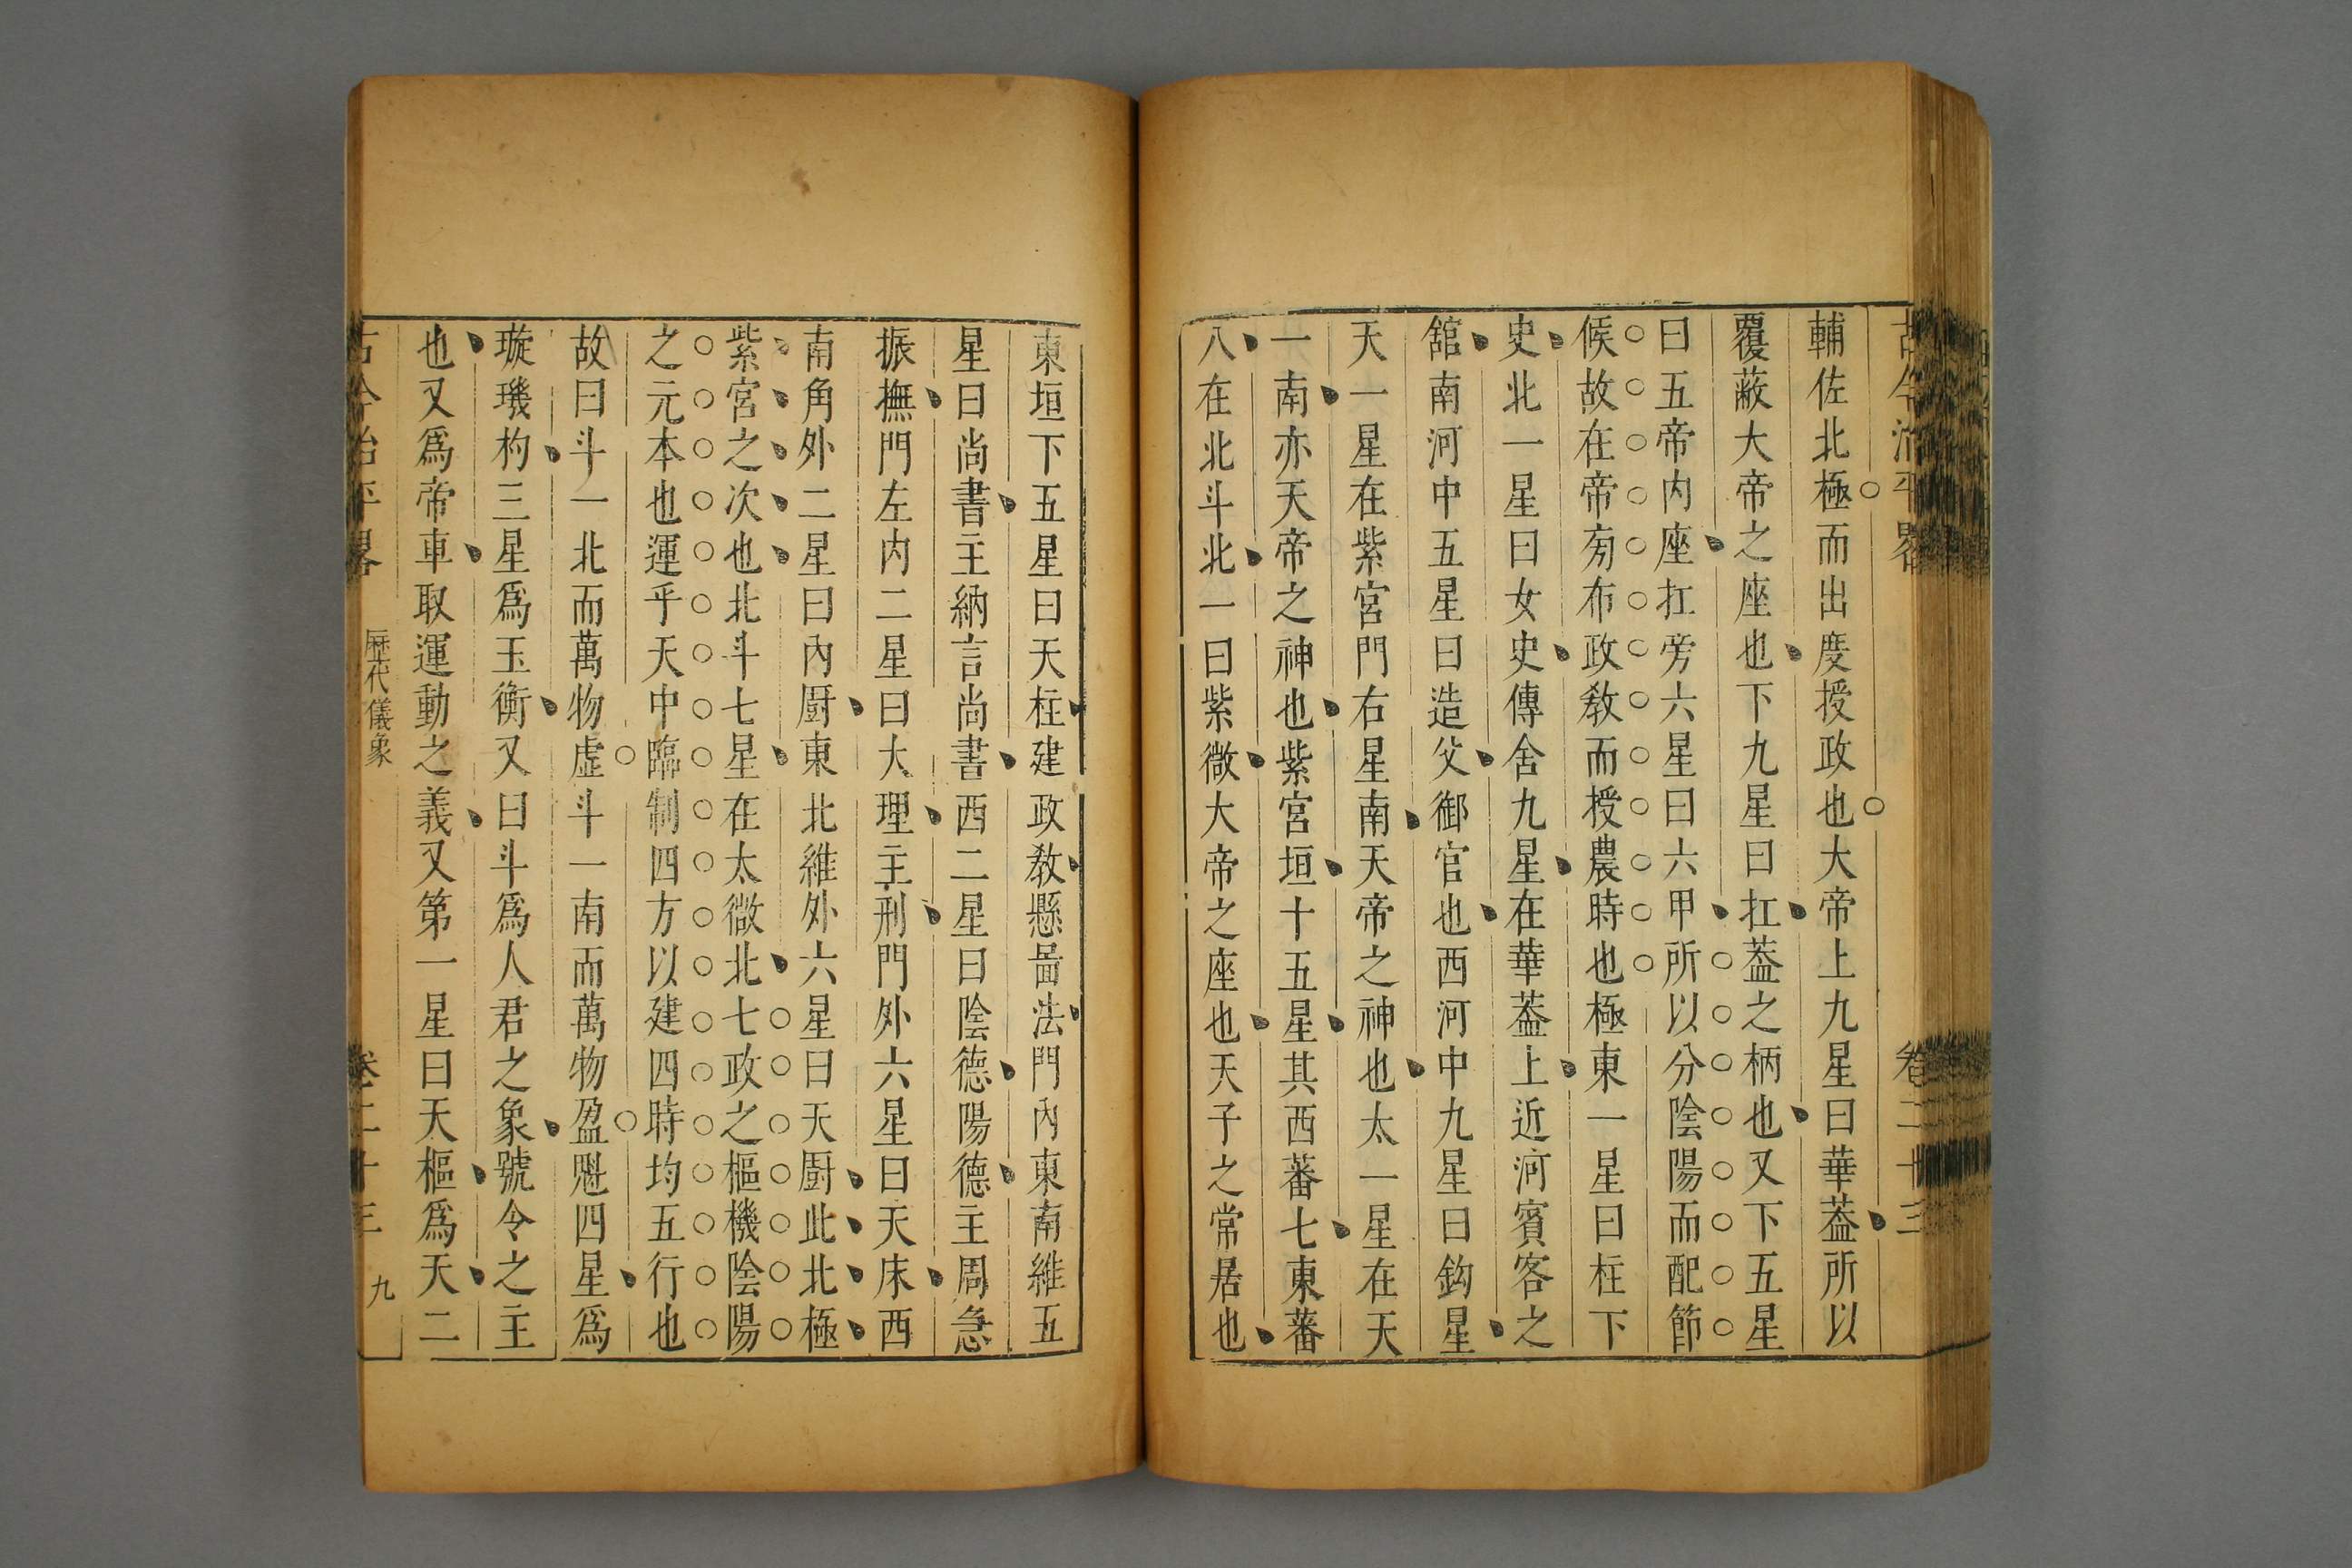 古今治平畧 卷二十三
輔佐北極而出度授政也大帝上九星曰華葢所以
覆蔽大帝之座也下九星曰扛葢之柄也又下五星
曰五帝內座扛旁六星曰六甲所以分陰陽而配節
候故在帝旁布政敎而授農時也極東一星曰柱下
史北一星曰女史傳舍九星在華葢上近河賓客之
舘南河中五星曰造父御官也西河中九星曰鈎星
天一星在紫宮門右星南天帝之神也太一星在天
一南亦天帝之神也紫宮垣十五星其西蕃七東蕃
八在北斗北一曰紫微大帝之座也天子之常居也
東垣下五星曰天柱建政敎懸啚法門內東南維五
星曰尚書主納言尚書西二星曰陰德陽德主周急
振撫門左內二星曰大理主刑門外六星曰天床西
南角外二星曰內廚東北維外六星曰天廚此北極
紫宮之次也北斗七星在太微北七政之樞機陰陽
之元本也運乎天中臨制四方以建四時均五行也
故曰斗一北而萬物虛斗一南而萬物盈魁四星爲
璇璣杓三星爲玉衡又曰斗爲人君之象號令之主
也又爲帝車取運動之義又第一星曰天樞爲天二
古今治平畧 歷代儀象 卷二十三 九